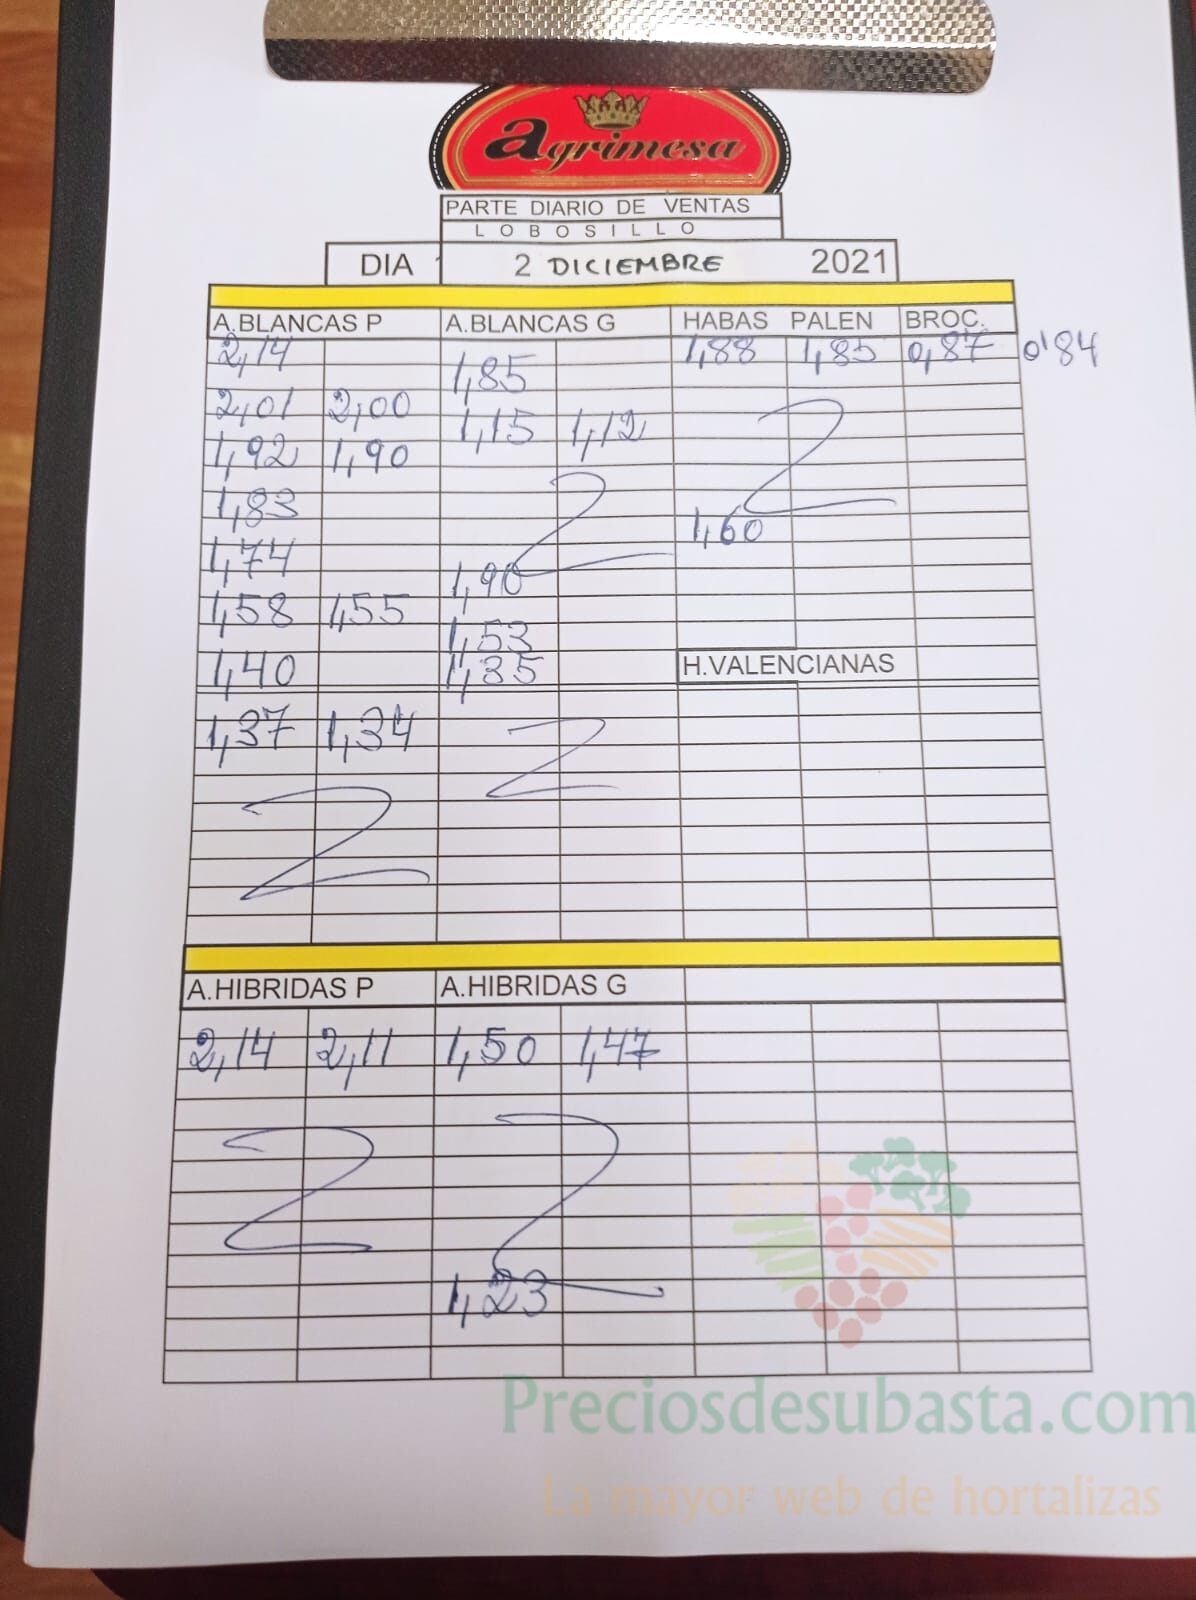 agrimesa
PARTE DIARIO DE VENTAS
LOBOSILLO
DIA 2 DICIEMBRE 2021
A.BLANCAS P A.BLANCAS G HABAS PALEN BROC.
2,14 1,88 1,85 0,87 0'84
1,85
2,01 2,00
1,15 1,12
1,92 1,90
1,83
1,60
1,74
1,90
1,58 1,55
1,53
1,40 1,35 H.VALENCIANAS
1,37 1,34
A.HIBRIDAS P A.HIBRIDAS G
2,14 2,11 1,50 1,47
1,23
Preciosdesubasta.com
La mayor web de hortalizas